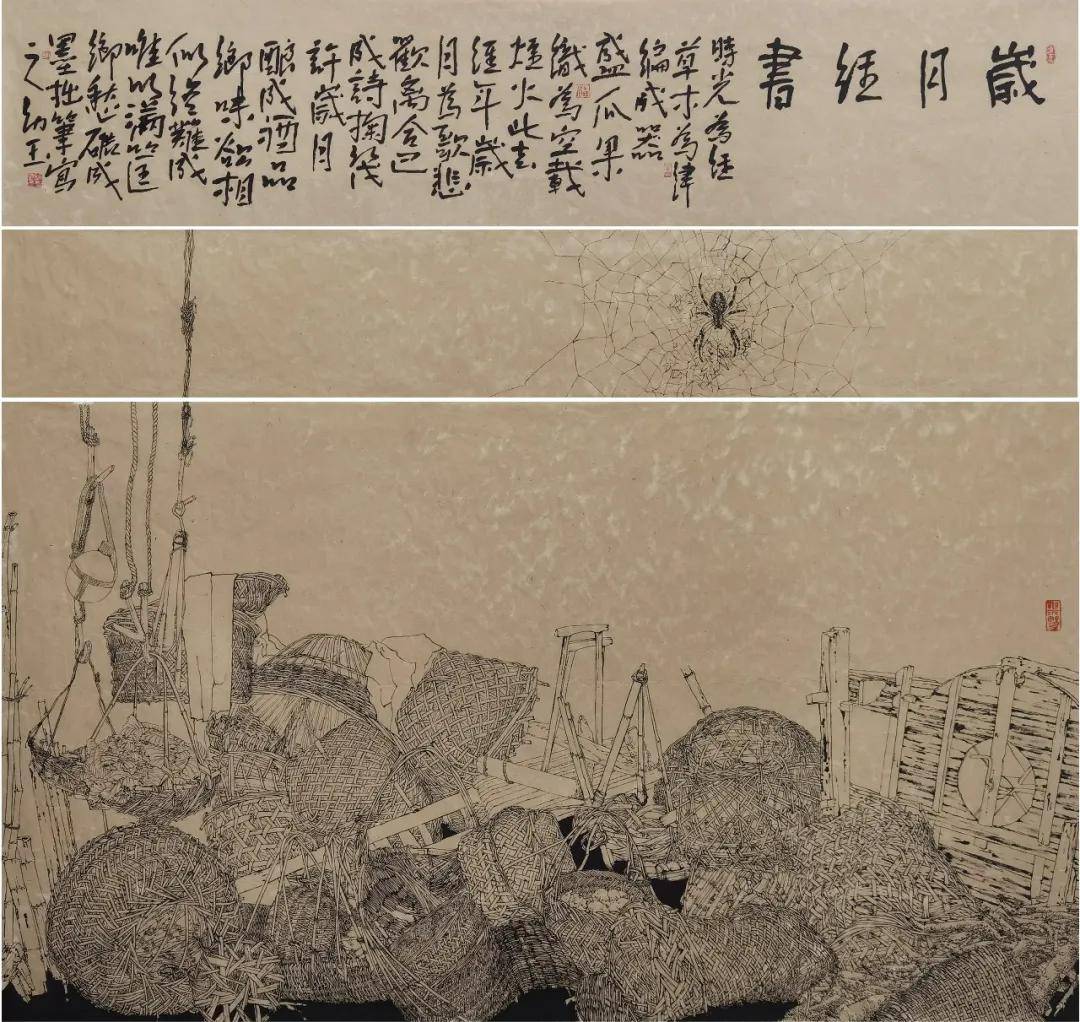 歲月經書
時光為經
草木為緯
編成器
盛瓜果
織為空載
煙火此去
經年歲
月為歌悲
歡離合已
成詩掬幾
許歲月
釀成酒品
鄉味欲相
似終難成
唯以滿筐
鄉愁碾成
墨拙筆寫
之